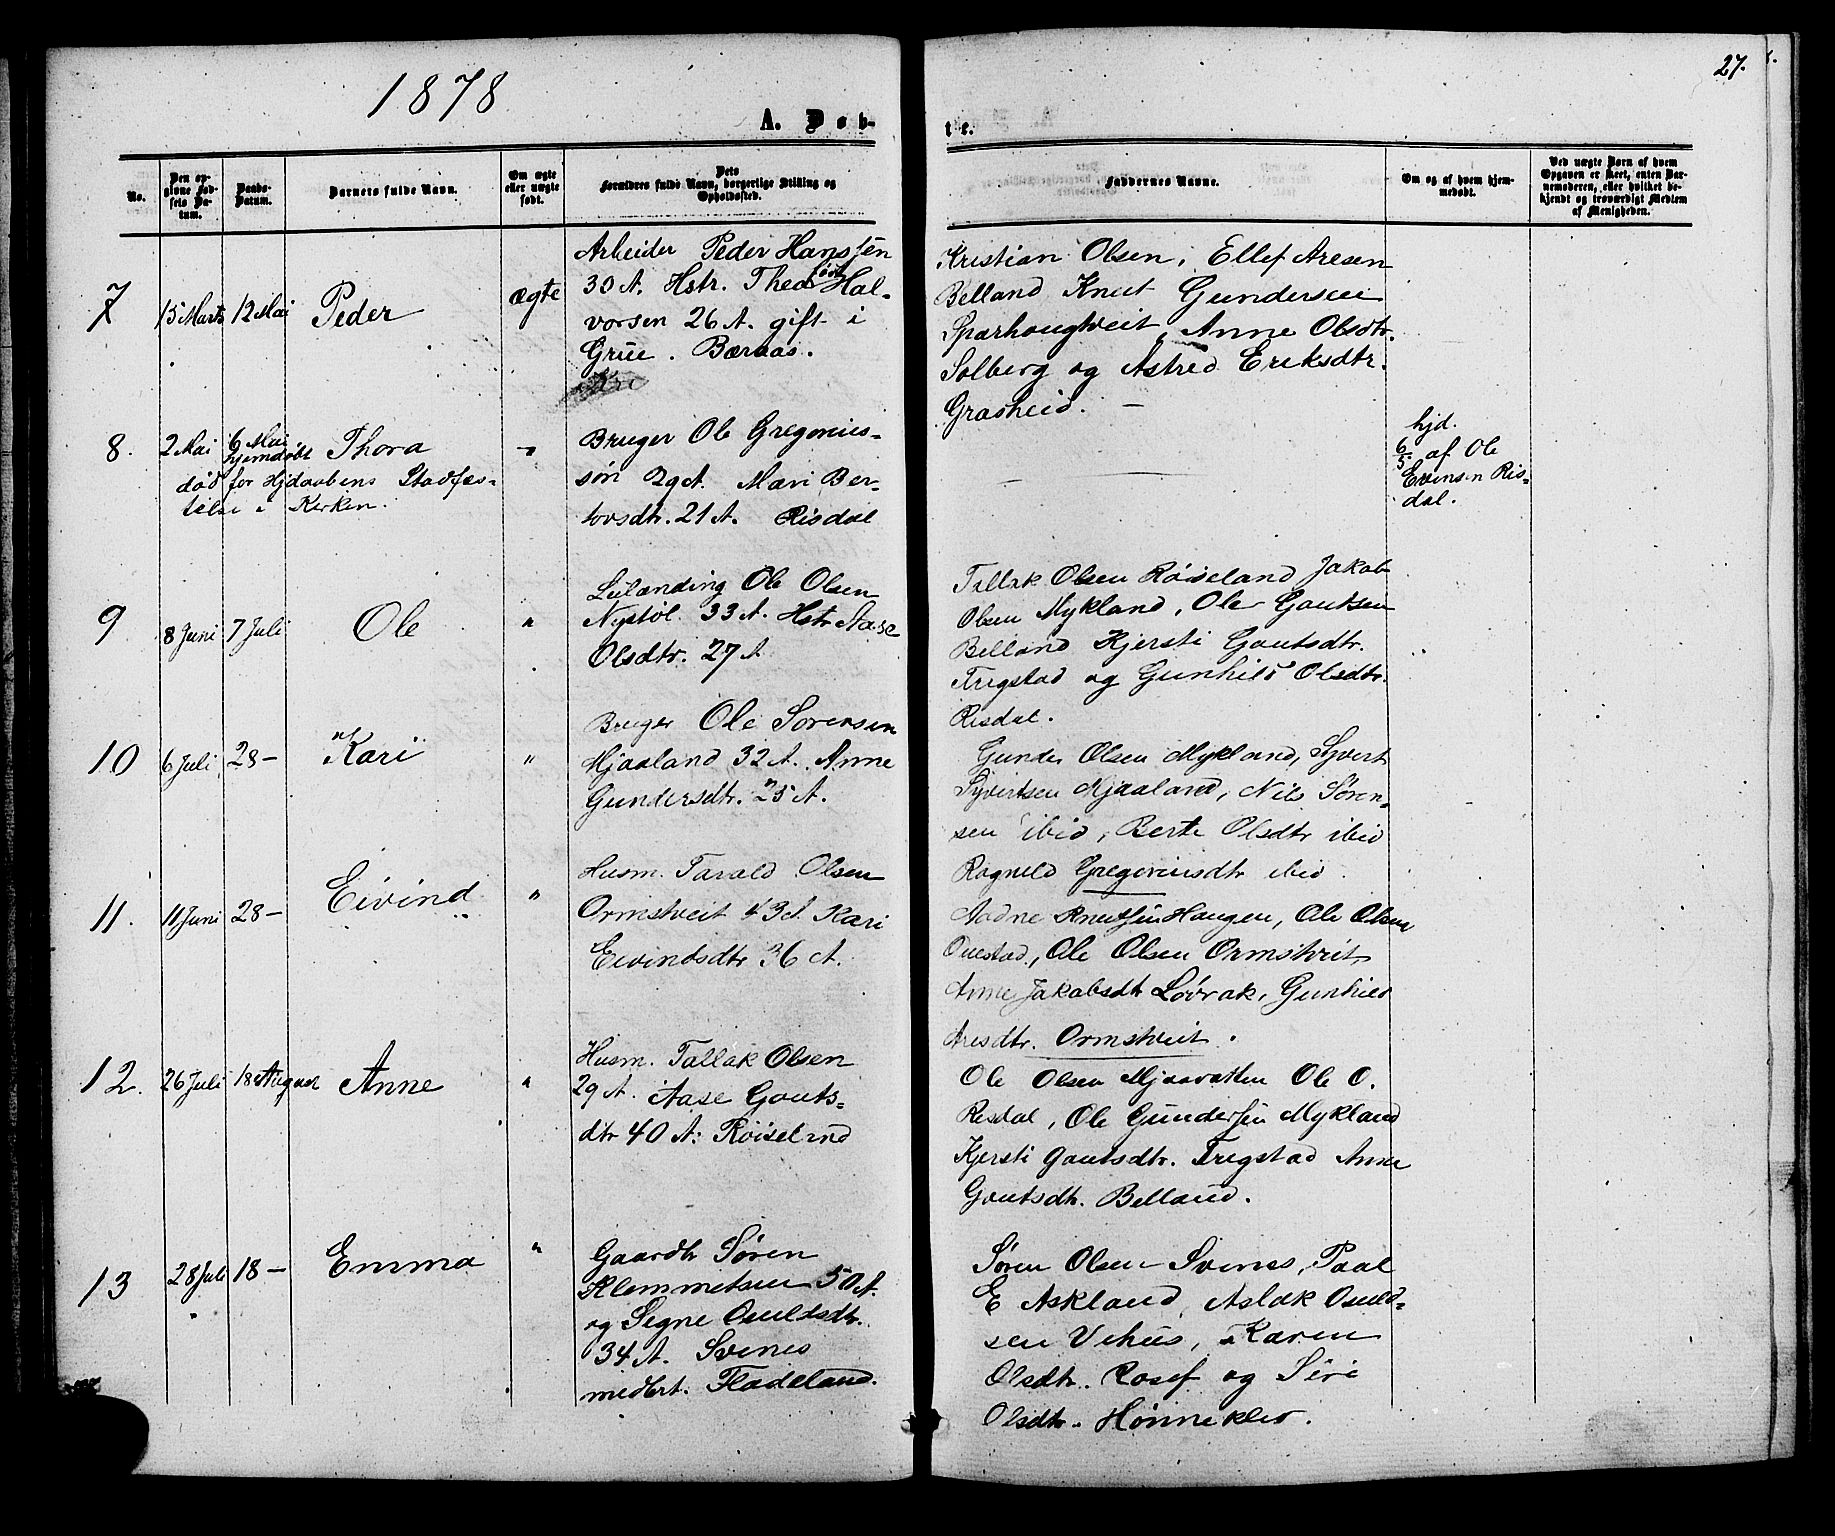 1878
27.
A. Døb-
te.
No.
Den op-
givne Fød-
sels Da-
tum.
Daabs-
Datum.
Barnets fulde Navn.
Om ægte
eller uægte
født.
Dets
Forældres fulde Navn, borgerlige Stilling og
Opholdssted.
Faddernes Navne.
Om og af hvem hjem-
medøbt.
Ved uægte Børn af hvem
Opgaven er skeet, enten Bar-
nemoderen, eller hvilket be-
kjendt og troværdigt Medlem
af Menigheden.
7
15 Marts
12 Mai
Peder
ægte
Arbeider Peder Hanssen
30 A. Hstr. Thea Hal-
vorsen 26 A. gift i
Grue. Bæraas.
Kristian Olsen, Ellef Aresen
Belland Knut Gundersen
Sparhougtveit, Anne Olsdtr.
Solberg og Astred Eriksdtr.
Grasheid. —
8.
2 Mai
6 Mai
hjemdøbt
Thora
død før Hjdaabens Stadfæs-
telse i Kirken.
Bruger Ole Gregorius-
søn 29 A. Mari Ber-
tovsdtr. 21 A. Risdal
hjd.
6/5 af Ole
Evensen Ris-
dal.
9
8 Juni
7 Juli
Ole
"
Leilænding Ole Olsen
Nystøl 33 A. Hstr Aase
Olsdtr. 27 A
Tallak Olsen Røiseland Jakob
Olsen Mykland, Ole Goutsen
Belland Kjersti Goutsdtr.
Tregstad og Gunhild Olsdtr.
Risdal.
10
6 Juli
28 —
Kari
"
Bruger Ole Sorensen
Mjaaland 32 A. Anne
Gundersdtr. 25 A.
Gunder Olsen Mykland, Syvert
Syvertsen Mjaaland, Nils Søren-
sen ibid, Berte Olsdtr ibid
Ragnild Gregoriusdtr ibid.
11.
11 Juni
28 —
Eivind
"
Husm. Tarald Olsen
Ormstveit 43 A. Kari
Eivindsdtr 36 A.
Aadne Knutsen Haugen, Ole Olsen
Ouestad, Ole Olsen Ormstveit
Anne Jakobsdtr Løvrak, Gunhild
Aresdtr. Ormstveit.
12.
26 Juli
18 August
Anne
"
Husm. Tallak Olsen
29 A. Aase Gouts-
dtr 40 A. Røiseland
Ole Olsen Mjaavatten Ole O.
Risdal, Ole Gundersen Mykland
Kjersti Goutsdtr. Tregstad Anne
Goutsdtr. Belland.
13
28 Juli
18 —
Emma
"
Gaardbr Søren
Klemmetsen 50 A.
og Segne Osuldsdtr.
34 A. Svenes
medbrt. Fladeland.
Søren Olsen Svenes, Paal
E Askland, Aslak Osuld-
sen Vehus, Karen
Olsdtr. Rosef og Siri
Olsdtr. Hønnekler.